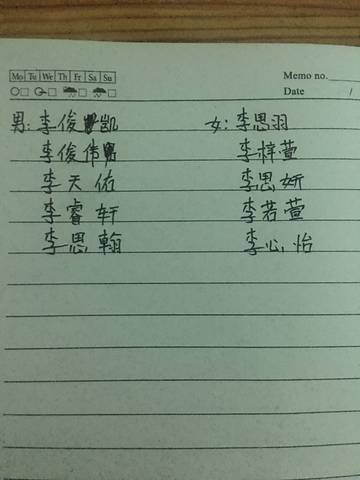 Mo Tu We Th Fr Sa Su
Memo no.
Date /
男: 李俊凯
女: 李思羽
李俊伟
李梓萱
李天佑
李思妍
李睿轩
李若萱
李思翰
李心怡